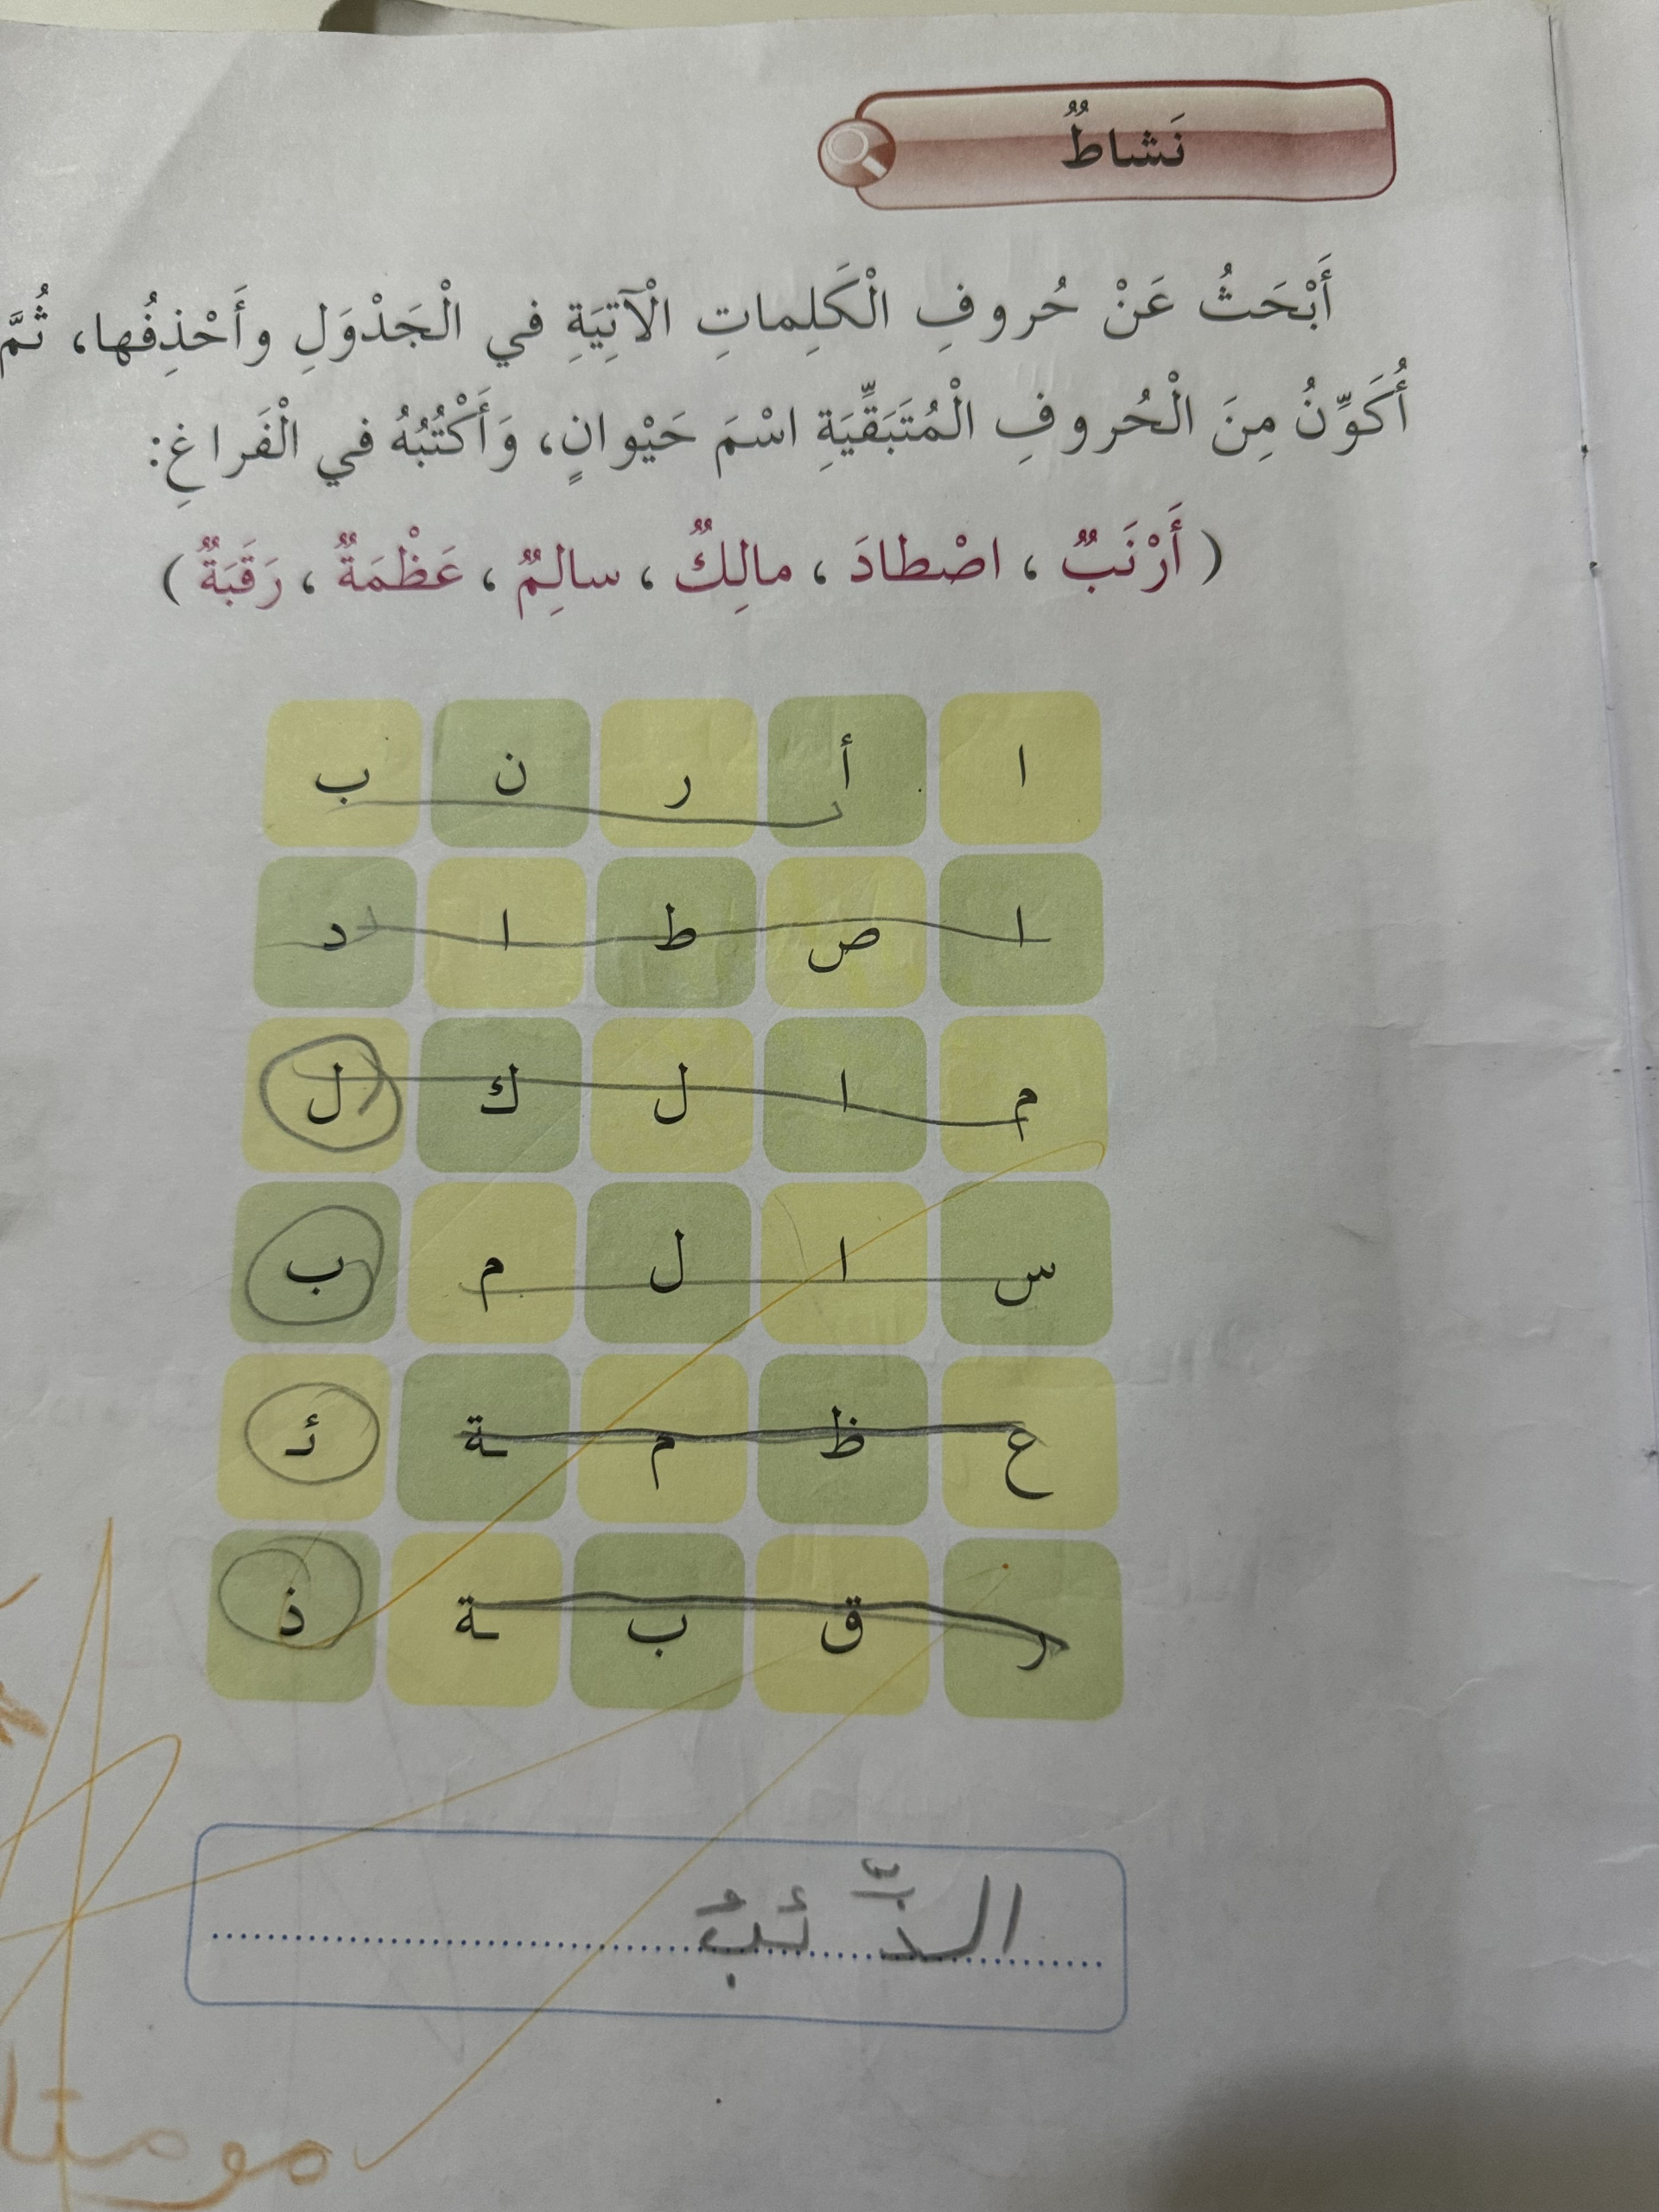 نَشاطٌ
أَبْحَثُ عَنْ حُروفِ الْكَلِماتِ الْآتِيَةِ في الْجَدْوَلِ وأَحْذِفُها، ثُمَّ
أُكَوِّنُ مِنَ الْحُروفِ الْمُتَبَقِّيَةِ اسْمَ حَيْوانٍ، وَأَكْتُبُهُ في الْفَراغِ:
( أَرْنَبٌ ، اصْطادَ ، مالِكٌ ، سالِمٌ ، عَظْمَةٌ ، رَقَبَةٌ )
ا أ ر ن ب
ا ص ط ا د
م ا ل ك ل
س ا ل م ب
ع ظ م ـة ئـ
ر ق ب ـة ذ
الذِّئبُ